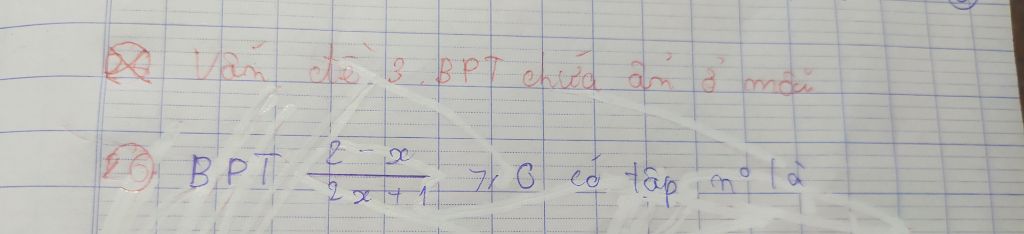 Vấn đề 3. BPT chứa ẩn ở mẫu
26) BPT (2 - x)/(2x + 1) ≥ 0 có tập n⁰ là